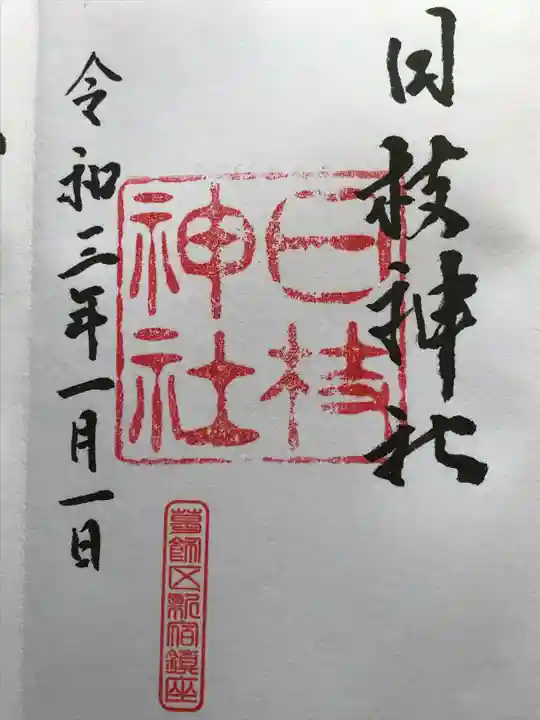 日枝神社
日枝神社
令和三年一月一日
葛飾区新宿鎮座